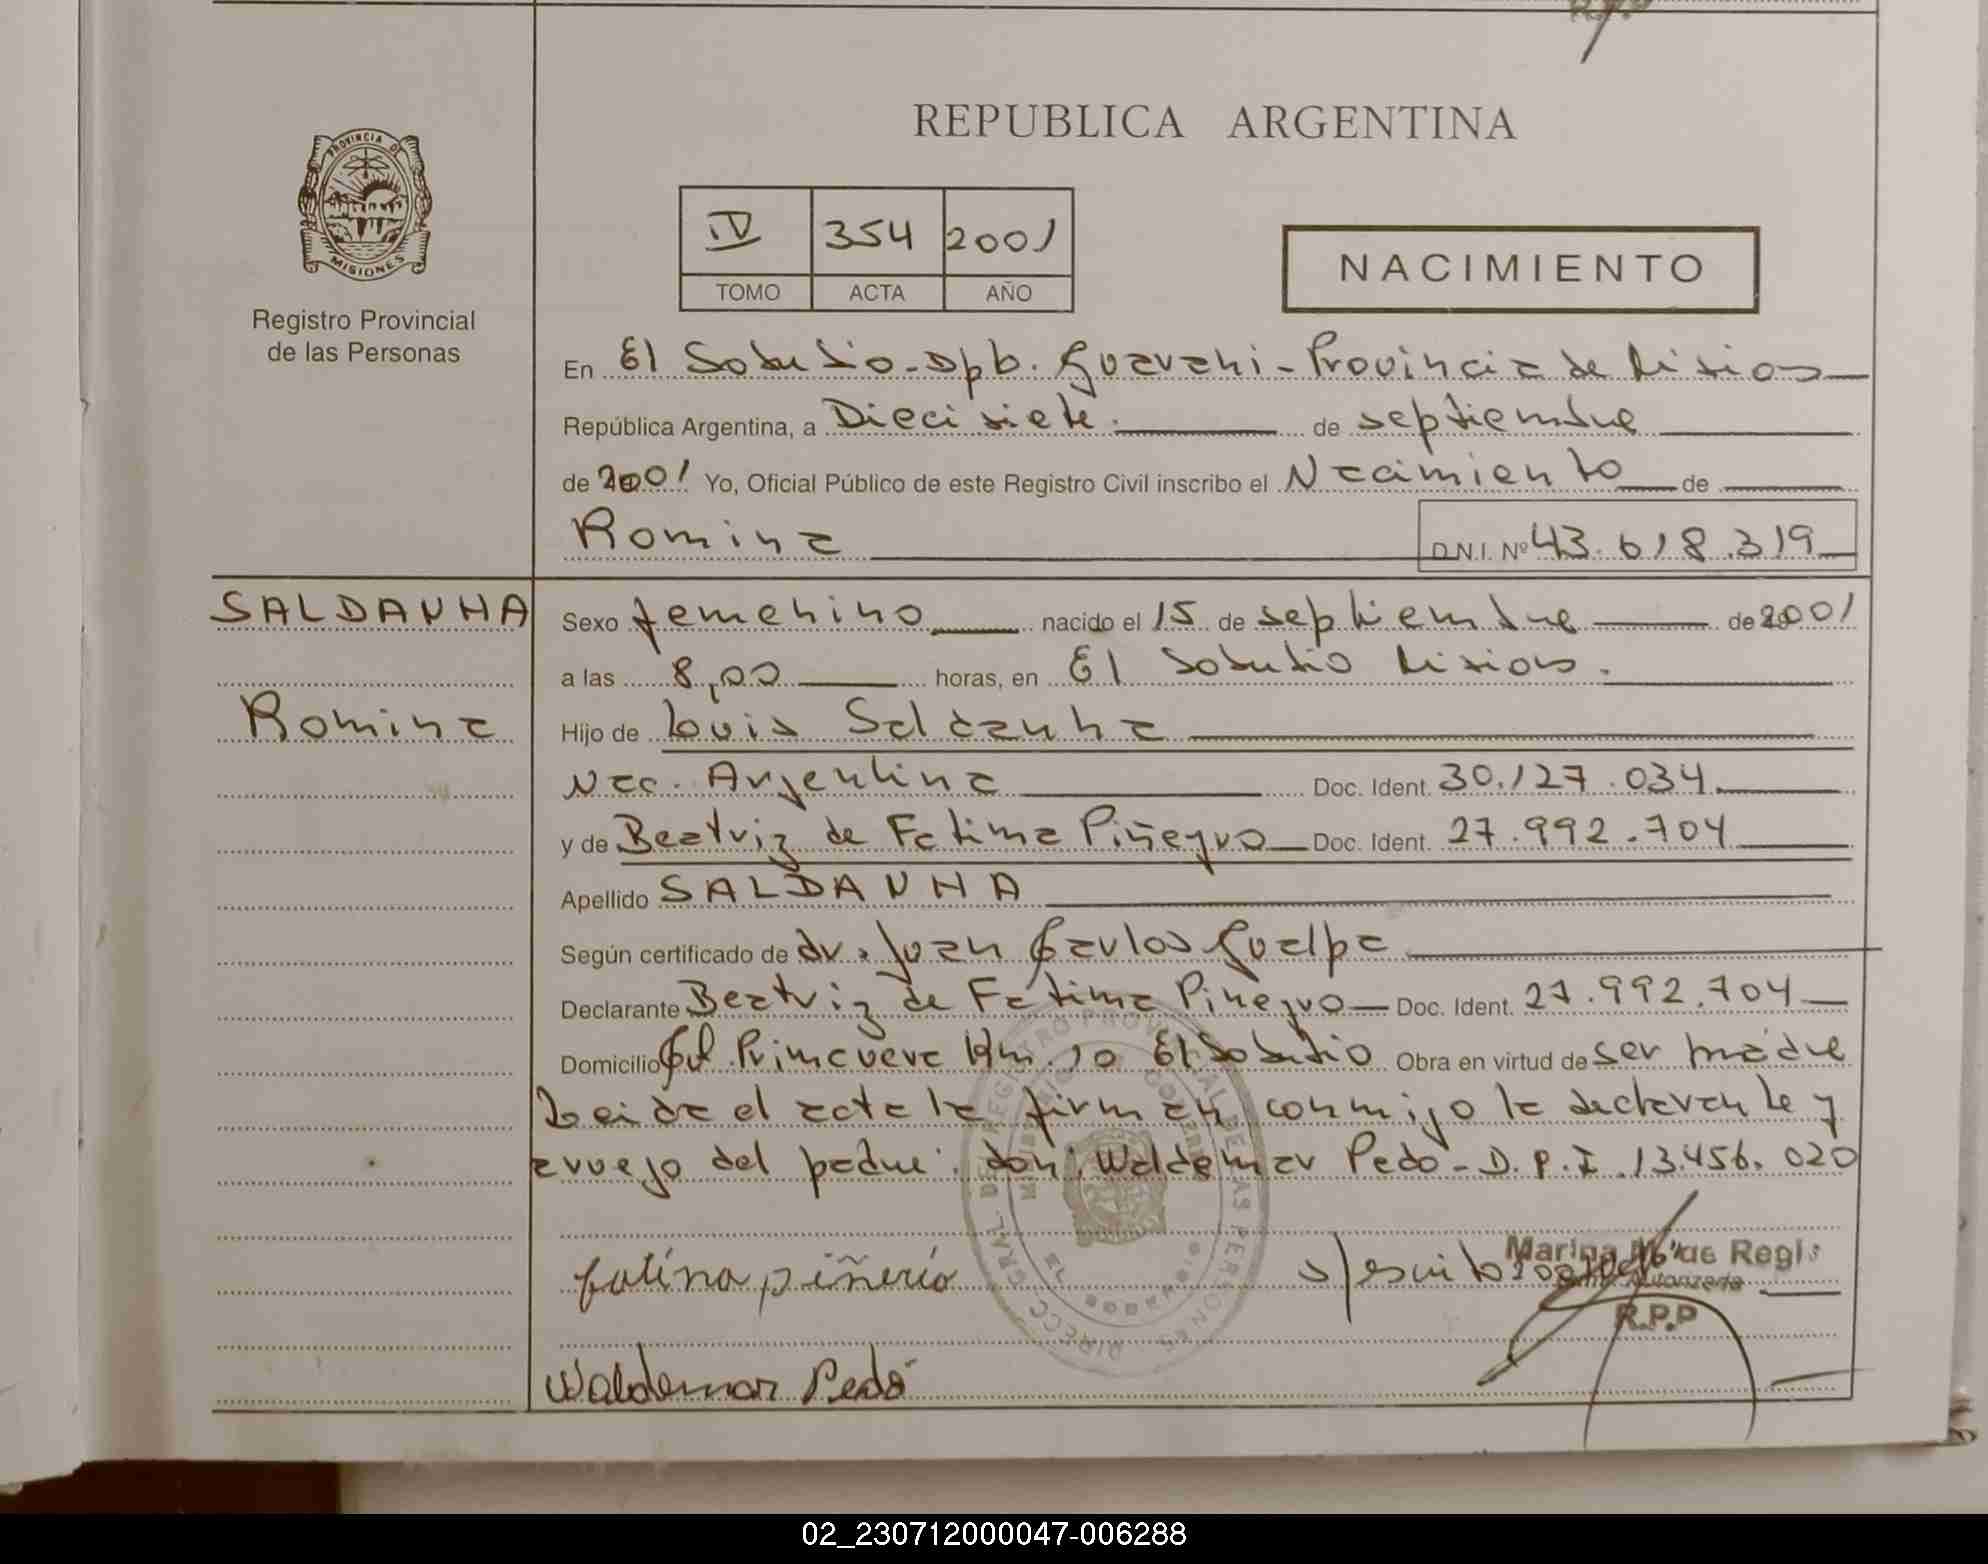 REPUBLICA ARGENTINA
PROVINCIA DE
MISIONES
Registro Provincial
de las Personas
IV 354 2001
TOMO ACTA AÑO
NACIMIENTO
En El Soberbio - Dpto. Guarani - Provincia de Misiones
República Argentina, a Diecisiete de septiembre
de 2001 Yo, Oficial Público de este Registro Civil inscribo el Nacimiento de
Romina D.N.I. Nº 43.618.319
SALDANHA
Romina
Sexo femenino nacido el 15 de septiembre de 2001
a las 8,00 horas, en El Soberbio Misiones.
Hijo de Luis Saldanha
Nac. Argentina Doc. Ident. 30.127.034
y de Beatriz de Fatima Piñeyro Doc. Ident. 27.992.704
Apellido SALDANHA
Según certificado de dr. Juan Carlos Gualpa
Declarante Beatriz de Fátima Piñeyro Doc. Ident. 27.992.704
Domicilio Primavera Km. 10 El Soberbio Obra en virtud de ser madre
Leida el acta la firman conmigo la declarante y
a ruego del padre: don: Waldemar Pedó - D.N.I. 13.456.020
fatína piñerío
Marina
Autorizada
R.P.P
Waldemar Pedó
02_230712000047-006288